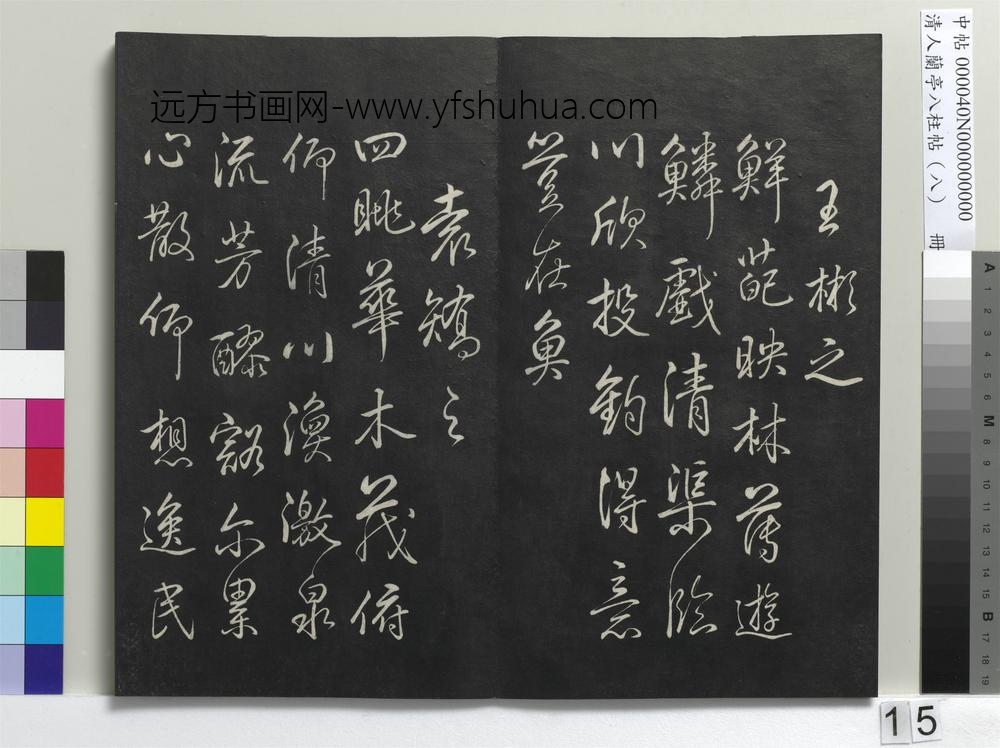 中帖 000040N000000000
清人蘭亭八柱帖（八） 冊
远方书画网-www.yfshuhua.com
王彬之
鮮葩映林薄遊
鱗戲清渠臨
川欣投釣得意
豈在魚
袁矯之
四眺華木茂俯
仰清川渙激泉
流芳醪豁尔累
心散仰想逸民
A 1 2 3 4 5 6 M 8 9 10 11 12 13 14 15 B 17 18 19
15